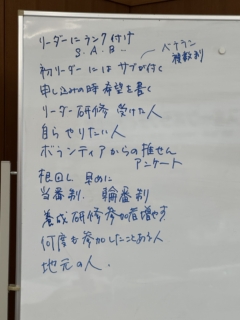 リーダーにランク付け
S.A.B...
ベテラン
複数制
初リーダーにはサブが付く
申し込みの時 希望を書く
リーダー研修 受けた人
自らやりたい人
ボランティアからの推せん
アンケート
根回し 早めに
当番制. 輪番制
養成研修参加者増やす
何度も参加したことある人
地元の人.